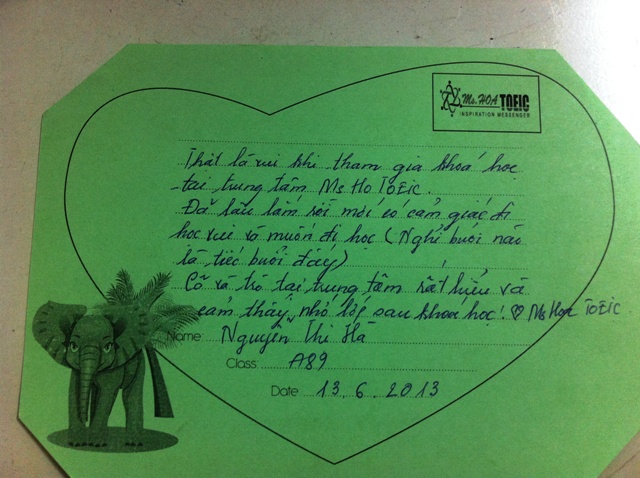 Ms. HOA TOEIC
INSPIRATION MESSENGER
Thật là vui khi tham gia khoá học
tại trung tâm Ms Ho TOEIC.
Đã lâu lắm rồi mới có cảm giác đi
học vui và muốn đi học (Nghỉ buổi nào
là tiếc buổi đấy)
Cô và trò tại trung tâm rất hiểu và
cảm thấy nhớ lớp sau khoa học! ♡ Ms Hoa TOEIC.
Name Nguyễn Thị Hà
Class A89
Date 13.6.2013